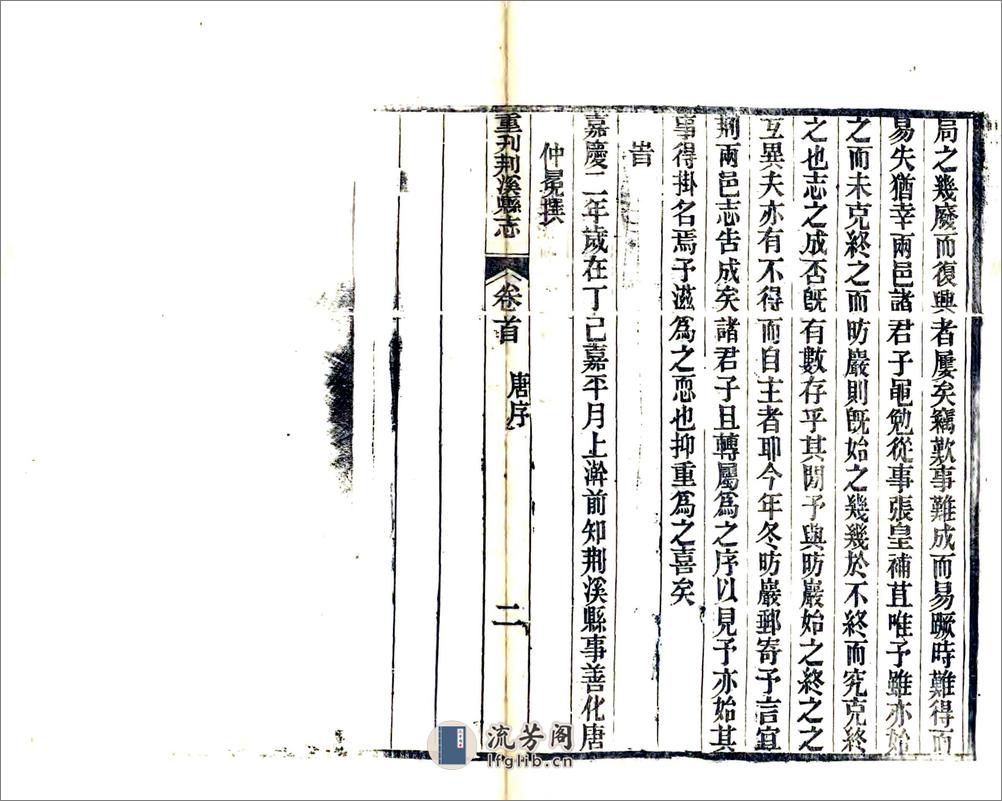 局之幾廢而復興者屢矣竊歎事難成而易蹶時難得而
易失猶幸兩邑諸君子黽勉從事張皇補苴唯予雖亦始
之而未克終之而昉巖則旣始之幾幾於不終而究克終
之也志之成否旣有數存乎其閒予與昉巖始之終之之
互異夫亦有不得而自主者耶今年冬昉巖郵寄予言宜
荆兩邑志告成矣諸君子且轉屬爲之序以見予亦始其
事得掛名焉予滋爲之恧也抑重爲之喜矣
旹
嘉慶二年歲在丁巳嘉平月上澣前知荆溪縣事善化唐
仲冕撰
重刋荆溪縣志 卷首 唐序 二
流芳阁
lfglib.cn